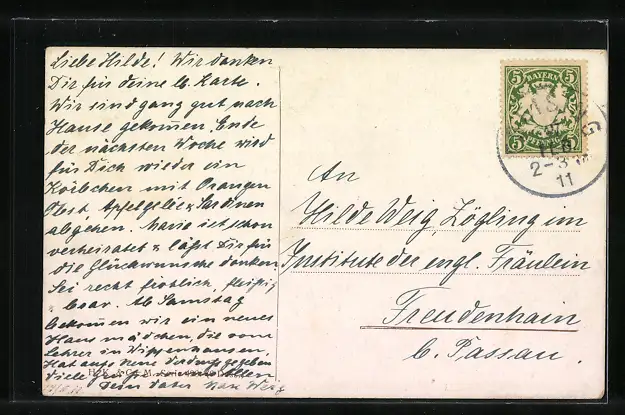 Liebe Hilde! Wir danken
Dir für deine lb. Karte.
Wir sind ganz gut nach
Hause gekommen. Ende
der nächsten Woche wird
für Dich wieder ein
Körbchen mit Orangen
Obst, Apfelgelée & Sardinen
abgehen. Marie ist schon
verheiratet & läßt Dir für
die Glückwünsche danken.
Sei recht fröhlich, fleißig
& brav. Ab Samstag
bekommen wir ein neues
Hausmädchen, die vom
Lehrer in
Hat aufs neue
Viele
Dein Vater Max Weig
An
Hilde Weig, Zögling im
Institute der engl. Fräulein
Freudenhain
b. Passau.
5 BAYERN 5
2-3
11